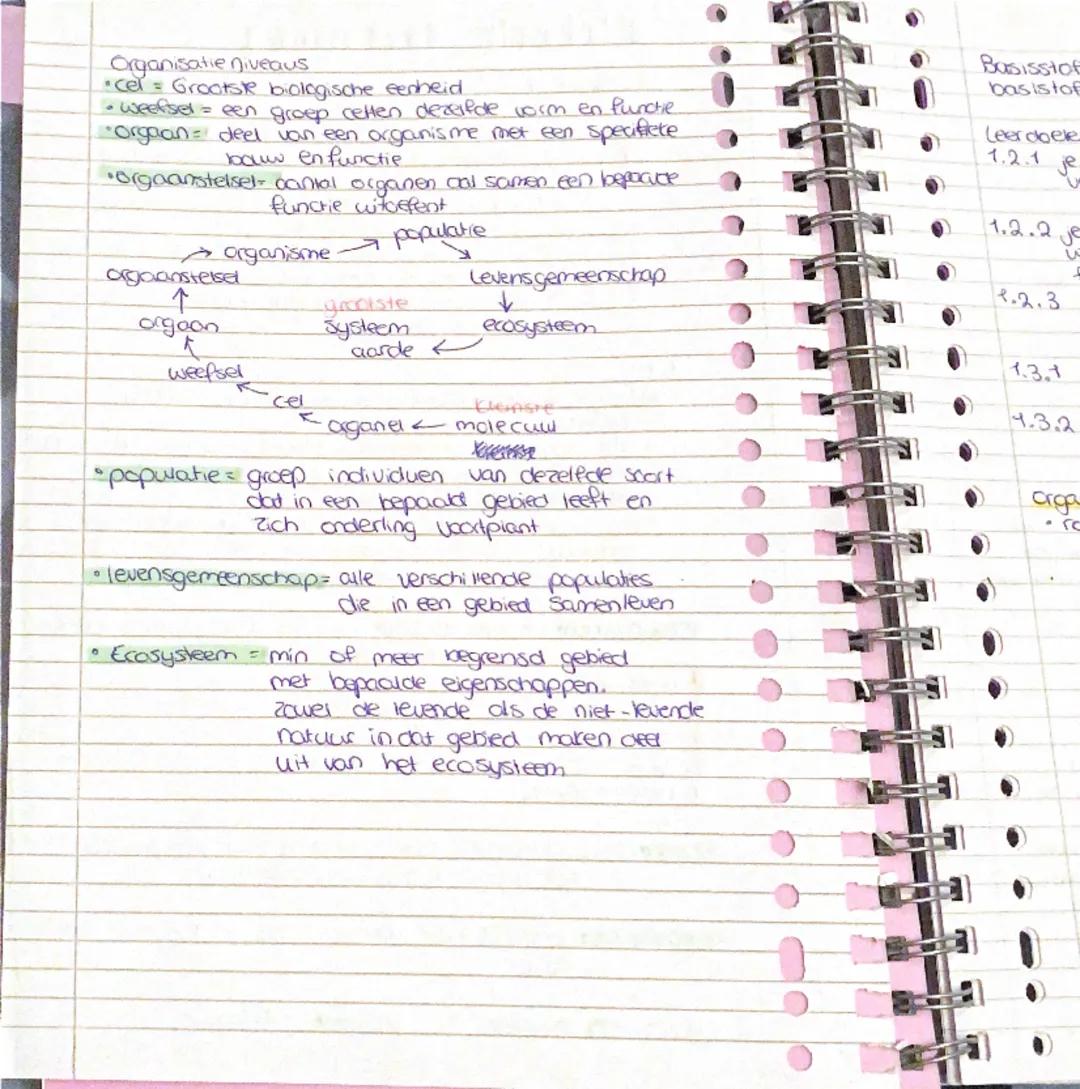 Organisatieniveaus
• cel = Grootste biologische eenheid
• weefsel = een groep cellen dezelfde vorm en functie
• orgaan = deel van een organisme met een specifieke
bouw en functie
• orgaanstelsel = aantal organen dat samen een bepaalde
functie uitoefent
→ organisme → populatie
orgaanstelsel
Levensgemeenschap
grootste
orgaan
systeem
aarde
ecosysteem
weefsel
cel
kleinste
organel ← molecuul
• populatie = groep individuen van dezelfde soort
dat in een bepaald gebied leeft en
zich onderling voortplant
• levensgemeenschap = alle verschillende populaties
die in een gebied samenleven
• Ecosysteem = min of meer begrensd gebied
met bepaalde eigenschappen.
zowel de levende als de niet-levende
natuur in dat gebied maken deel
uit van het ecosysteem
Basisstof
basisstof
Leerdoele
1.2.1 je
1.2.2 je
1.2.3
1.3.1
1.3.2
orga